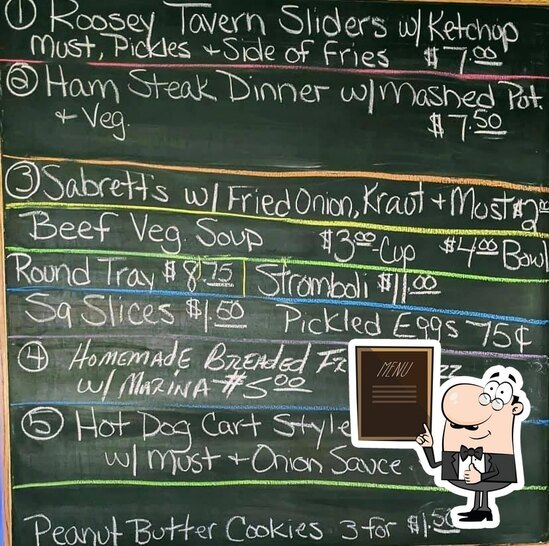 ① Roosey Tavern Sliders w/ Ketchup
Must, Pickles + Side of Fries $7.00
② Ham Steak Dinner w/ Mashed Pot.
+ Veg. $7.50
③ Sabrett's w/ Fried Onion, Kraut + Must $2.00
Beef Veg. Soup $3.00 Cup $4.00 Bowl
Round Tray $8.75 Stromboli $11.00
Sq Slices $1.50 Pickled Eggs 75¢
④ Homemade Breaded
w/ Marina $5.00
MENU
⑤ Hot Dog Cart Style
w/ Must + Onion Sauce
Peanut Butter Cookies 3 for $1.50